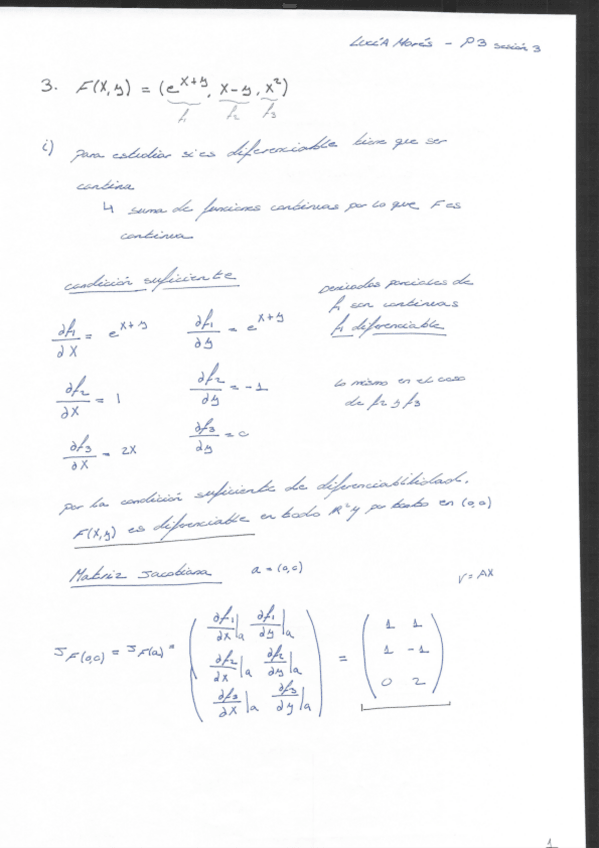 LUCÍA Morés - P3 sesión 3
3. F(x,y) = (e^{x+y}, x-y, x²)
f₁ f₂ f₃
i) para estudiar si es diferenciable tiene que ser
continua
↳ suma de funciones continuas por lo que F es
continua
condición suficiente
derivadas parciales de
f₁ son continuas
f₁ diferenciable
∂f₁/∂x = e^{x+y} ∂f₁/∂y = e^{x+y}
∂f₂/∂x = 1 ∂f₂/∂y = -1
lo mismo en el caso
de f₂ y f₃
∂f₃/∂x = 2x ∂f₃/∂y = 0
por la condición suficiente de diferenciabilidad,
F(x,y) es diferenciable en todo R² y por tanto en (0,0)
Matriz Jacobiana a = (0,0)
r = AX
J_F(0,0) = J_F(a) = ( ∂f₁/∂x|a ∂f₁/∂y|a ; ∂f₂/∂x|a ∂f₂/∂y|a ; ∂f₃/∂x|a ∂f₃/∂y|a ) = ( 1 1 ; 1 -1 ; 0 2 )
1